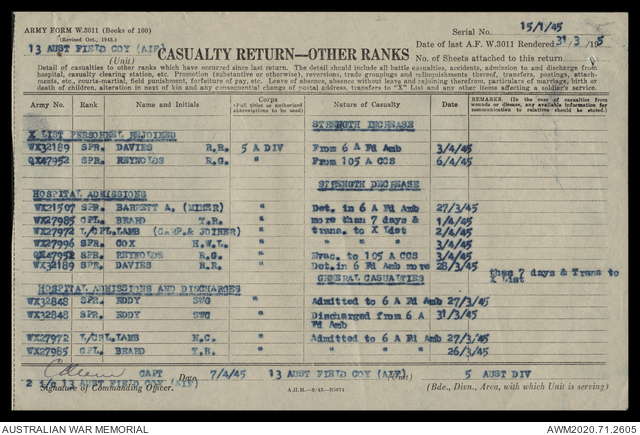 ARMY FORM W.3011 (Books of 100)
(Revised Oct., 1943.)
Serial No. 15/1/45
13 AUST FIELD COY (AIF)
(Unit)
CASUALTY RETURN—OTHER RANKS
Date of last A.F. W.3011 Rendered 31/3/195
No. of Sheets attached to this return
Detail of casualties to other ranks which have occurred since last return. The detail should include all battle casualties, accidents, admission to and discharge from
hospital, casualty clearing station, etc. Promotion (substantive or otherwise), reversions, trade groupings and relinquishments thereof, transfers, postings, attach-
ments, etc., courts-martial, field punishment, forfeiture of pay, etc. Leave of absence, absence without leave and rejoining therefrom, particulars of marriage, birth or
death of children, alteration in next of kin and any consequential change of postal address, transfers to "X" List and any other items affecting a soldier's service.
Army No. Rank Name and Initials Corps (Full titles or authorized abbreviations to be used) Nature of Casualty Date REMARKS. (In the case of casualties from wounds or disease, any available information for communication to relatives should be stated.)
X LIST PERSONNEL REJOINED STRENGTH INCREASE
WX32189 SPR. DAVIES R.R. 5 A DIV From 6 A Fd Amb 3/4/45
QX47952 SPR. REYNOLDS R.G. " From 105 A CCS 6/4/45
HOSPITAL ADMISSIONS STRENGTH DECREASE
WX21507 SPR. BARRETT A. (MINER) " Det. in 6 A Fd Amb 27/3/45
WX27985 CPL. BEARD T.R. " more than 7 days & 1/4/45
WX27972 L/CPL. LAMB (CARP. & JOINER) " trans. to X List 2/4/45
WX27996 SPR. COX H.W.L. " " " " 3/4/45
QX47952 SPR. REYNOLDS R.G. " Evac. to 105 A CCS 3/4/45
WX32189 SPR. DAVIES R.R. " Det. in 6 Fd Amb more 28/3/45 than 7 days & Trans to
X List
HOSPITAL ADMISSIONS AND DISCHARGES GENERAL CASUALTIES
WX32848 SPR. EDDY SWG " Admitted to 6 A Fd Amb 27/3/45
WX32848 SPR. EDDY SWG " Discharged from 6 A 31/3/45
Fd Amb
WX27972 L/CPL. LAMB N.C. " Admitted to 6 A Fd Amb 27/3/45
WX27985 CPL. BEARD T.R. " " " 26/3/45
CAPT Date 7/4/45 13 AUST FIELD COY (AIF) (Unit) 5 AUST DIV
2 i/c 13 AUST FIELD COY (AIF)
Signature of Commanding Officer. A.H.M.—9/43—
(Bde., Divn., Area, with which Unit is serving)
AUSTRALIAN WAR MEMORIAL AWM2020.71.2605